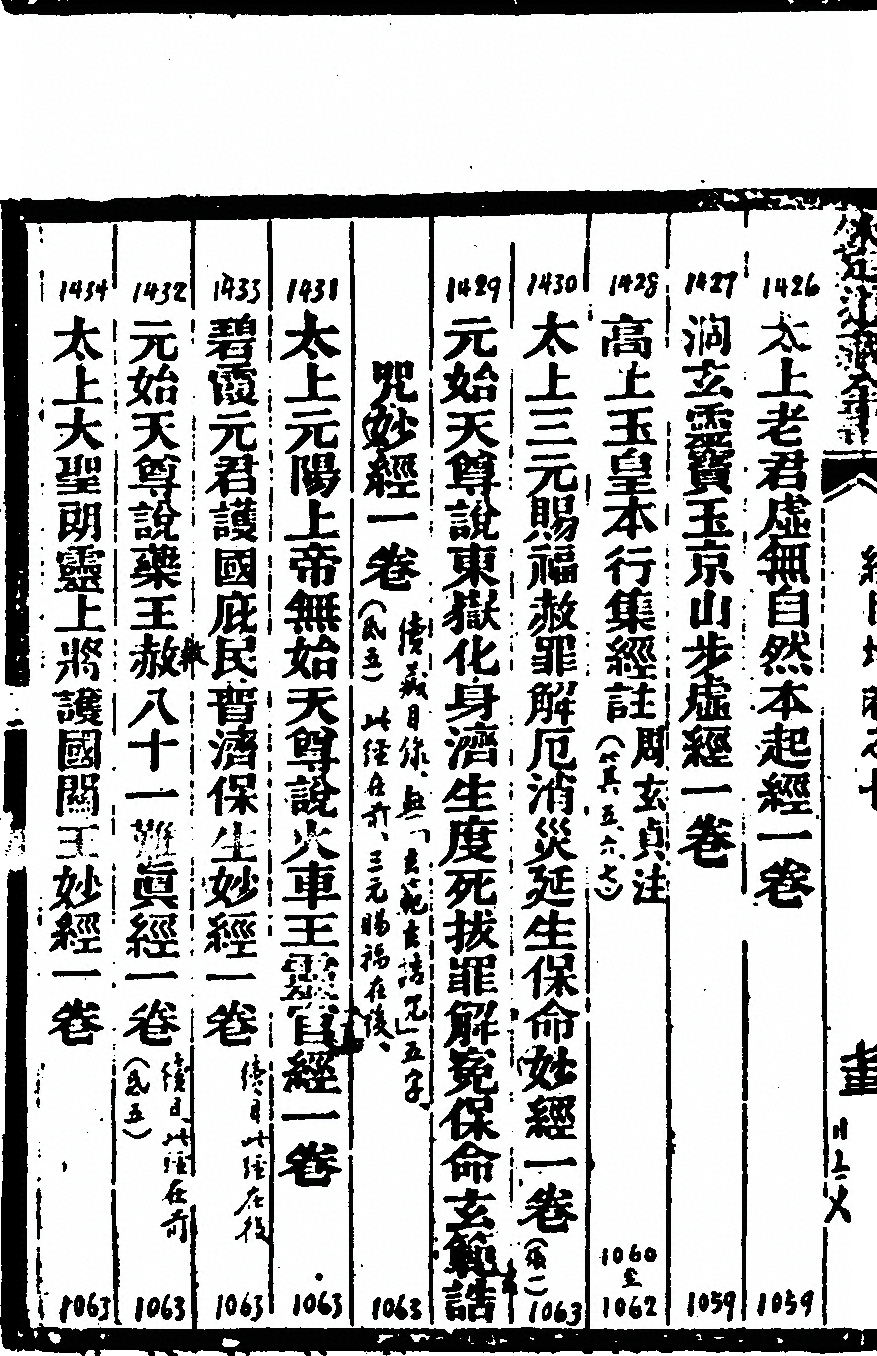 1426 太上老君虛無自然本起經一卷 1059
1427 洞玄靈寶玉京山步虛經一卷 1059
1428 高上玉皇本行集經註 周玄貞注 (五、六、七) 1060至1062
1430 太上三元賜福赦罪解厄消災延生保命妙經一卷 1063
1429 元始天尊說東嶽化身濟生度死拔罪解冤保命玄範誥
咒妙經一卷 續藏目錄、無「玄範玄誥咒」五字、 1063
此經在前、三元賜福在後、
1431 太上元陽上帝無始天尊說火車王靈官經一卷 1063
1433 碧霞元君護國庇民普濟保生妙經一卷 續目此經在後 1063
1432 元始天尊說藥王赦八十一難眞經一卷 續目此經在前 1063
1434 太上大聖朗靈上將護國關王妙經一卷 1063